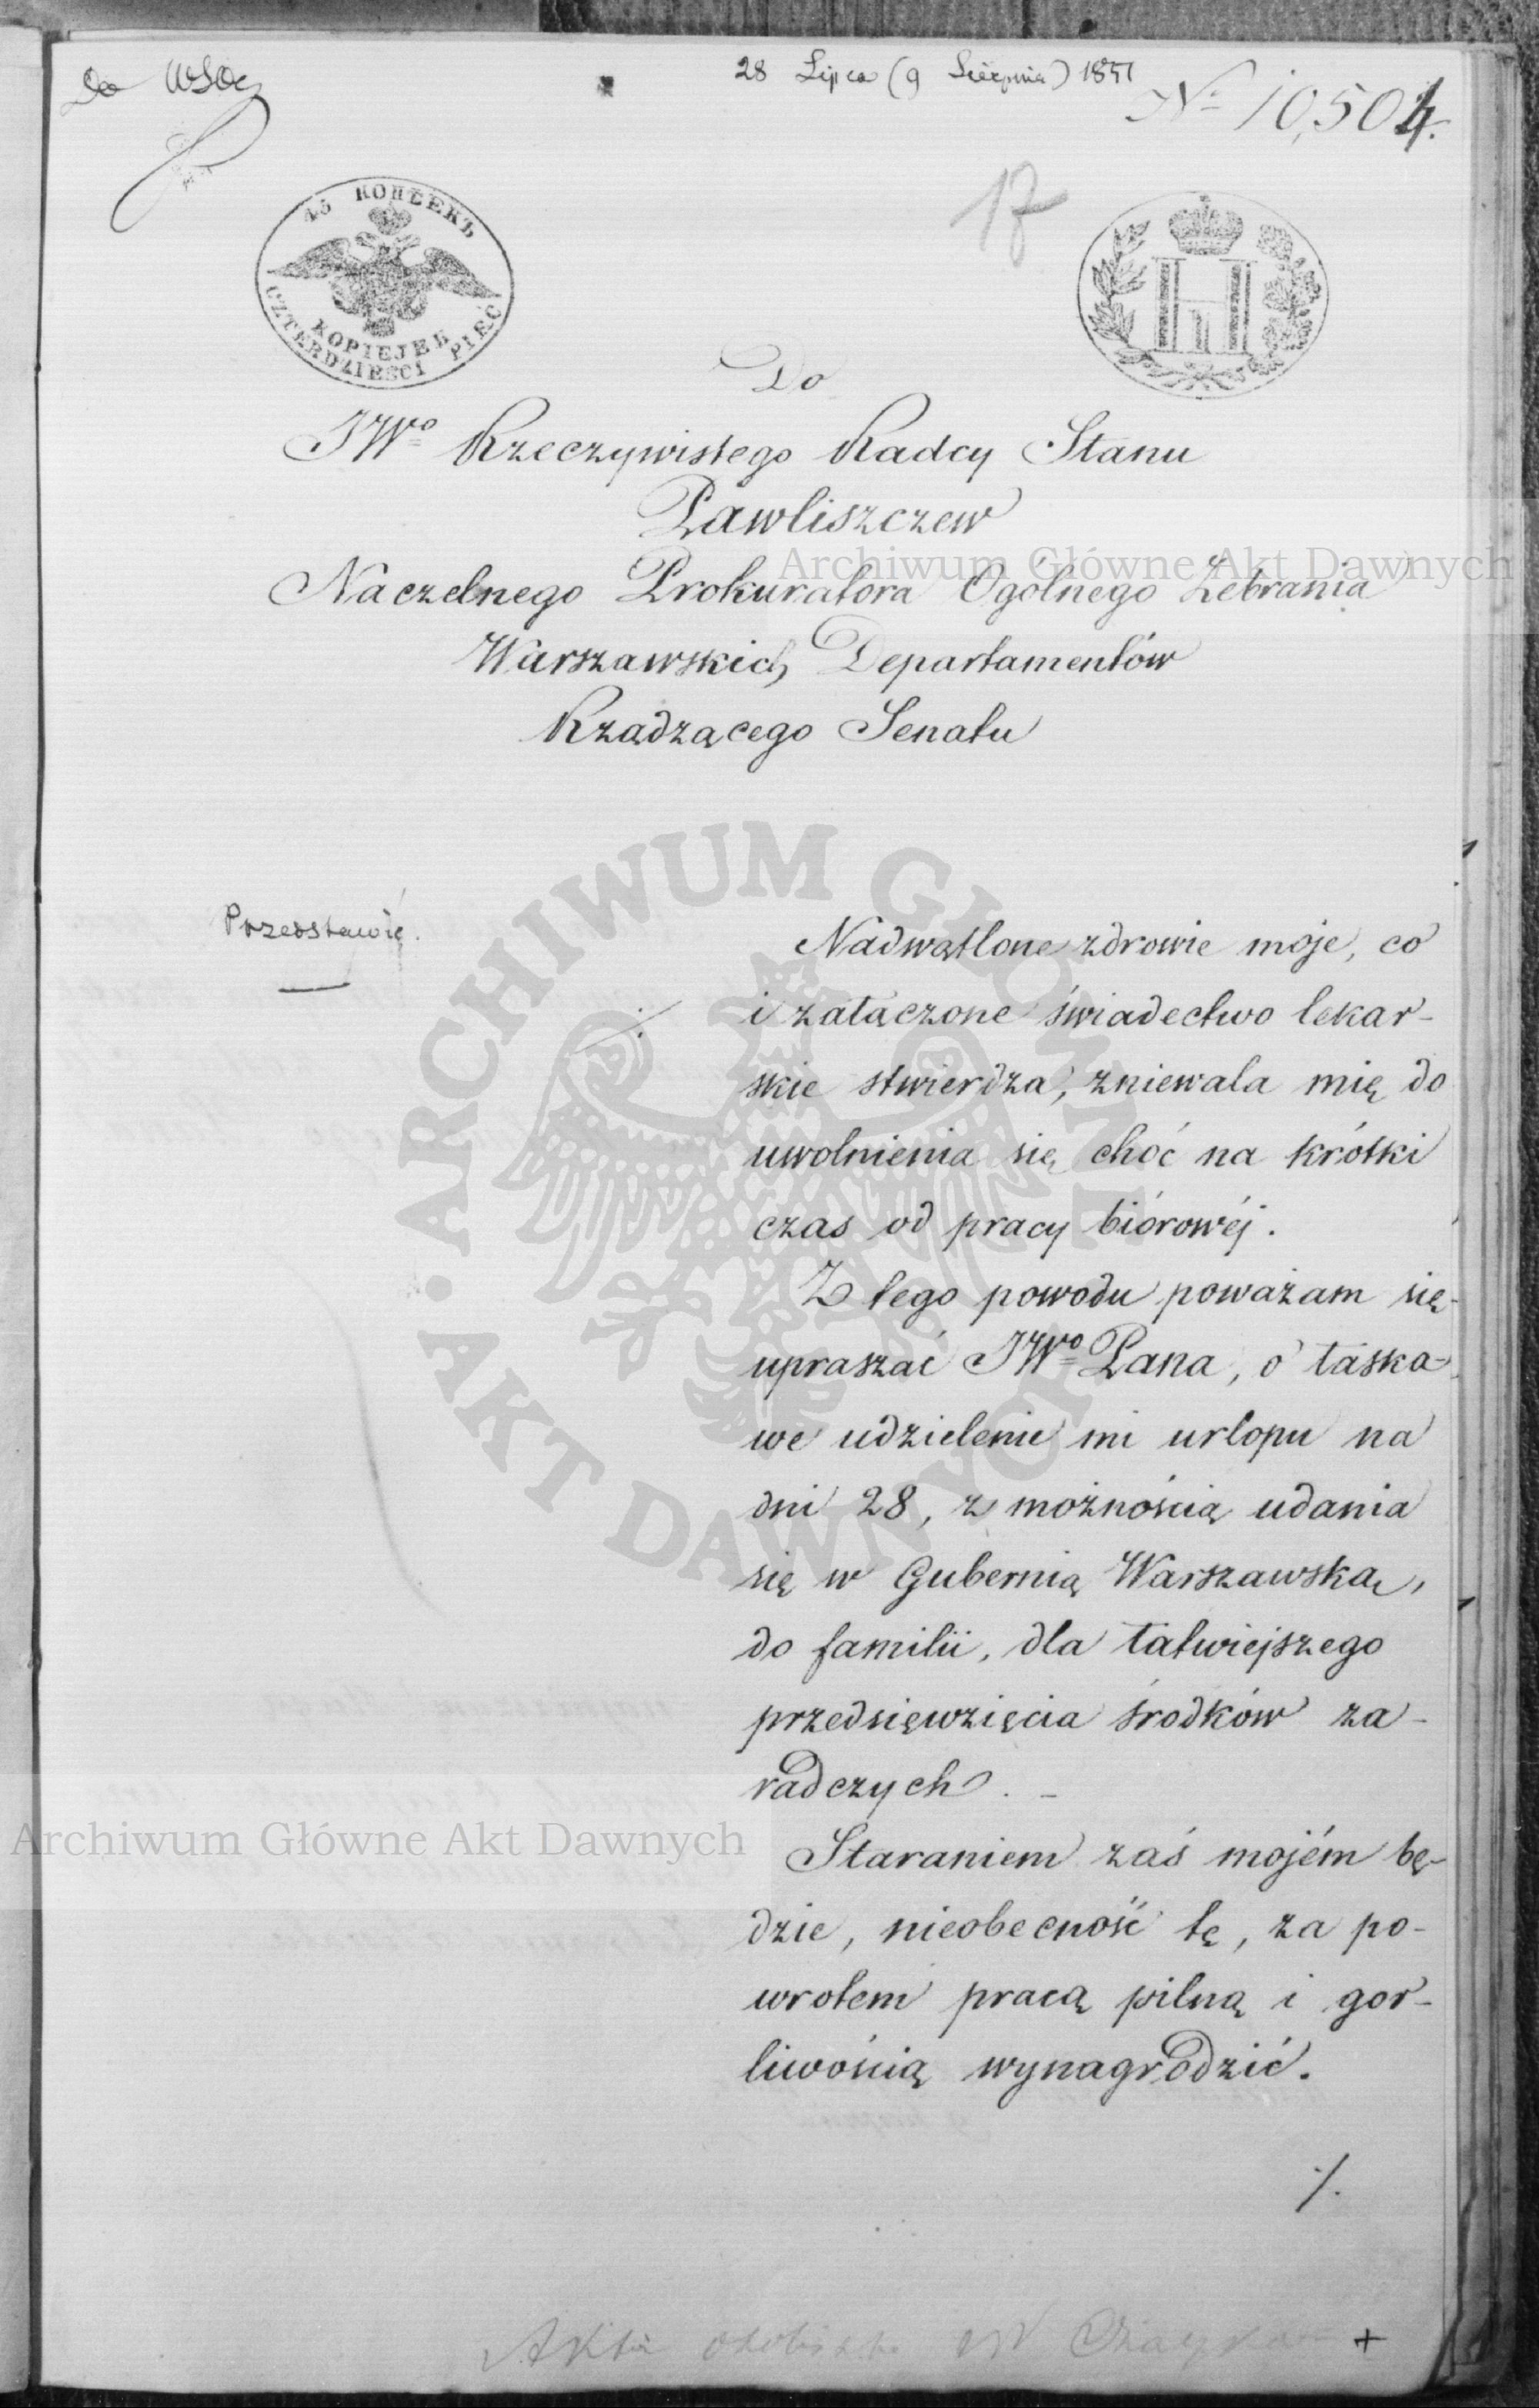 Do
28 Lipca (9 Sierpnia) 1851
No 10,504.
17
45 КОПѢЕКЪ
KOPIEJEK
CZTERDZIEŚCI PIĘĆ
Do
JWo Rzeczywistego Radcy Stanu
Pawliszczew
Naczelnego Prokuratora Ogólnego Zebrania
Warszawskich Departamentów
Rządzącego Senatu
Przedstawić.
Nadwątlone zdrowie moje, co
i załączone świadectwo lekar-
skie stwierdza, zniewala mię do
uwolnienia się choć na krótki
czas od pracy biórowéj.
Z tego powodu poważam się
upraszać JWo Pana, o łaska-
we udzielenie mi urlopu na
dni 28, z możnością udania
się w Gubernią Warszawską,
do familii, dla łatwiejszego
przedsięwzięcia środków za-
radczych. -
Staraniem zaś mojém bę-
dzie, nieobecność tę, za po-
wrotem pracą pilną i gor-
liwością wynagrodzić.
./.
Akta osobiste +
ARCHIWUM GŁÓWNE
AKT DAWNYCH
Archiwum Główne Akt Dawnych
Archiwum Główne Akt Dawnych